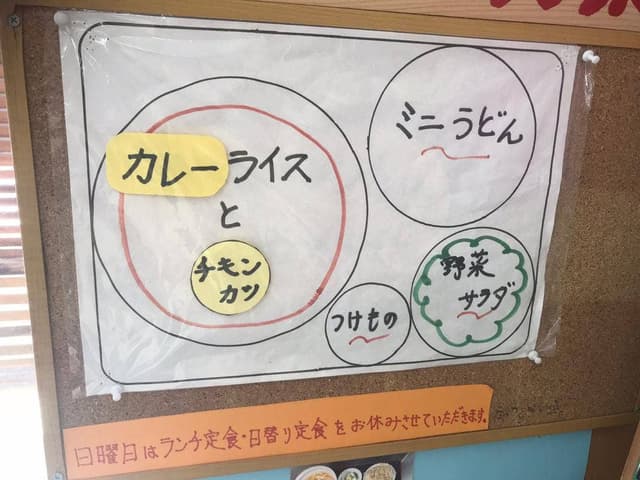 カレーライス
と
チキン
カツ
ミニうどん
つけもの
野菜
サラダ
日曜日はランチ定食・日替り定食をお休みさせていただきます。